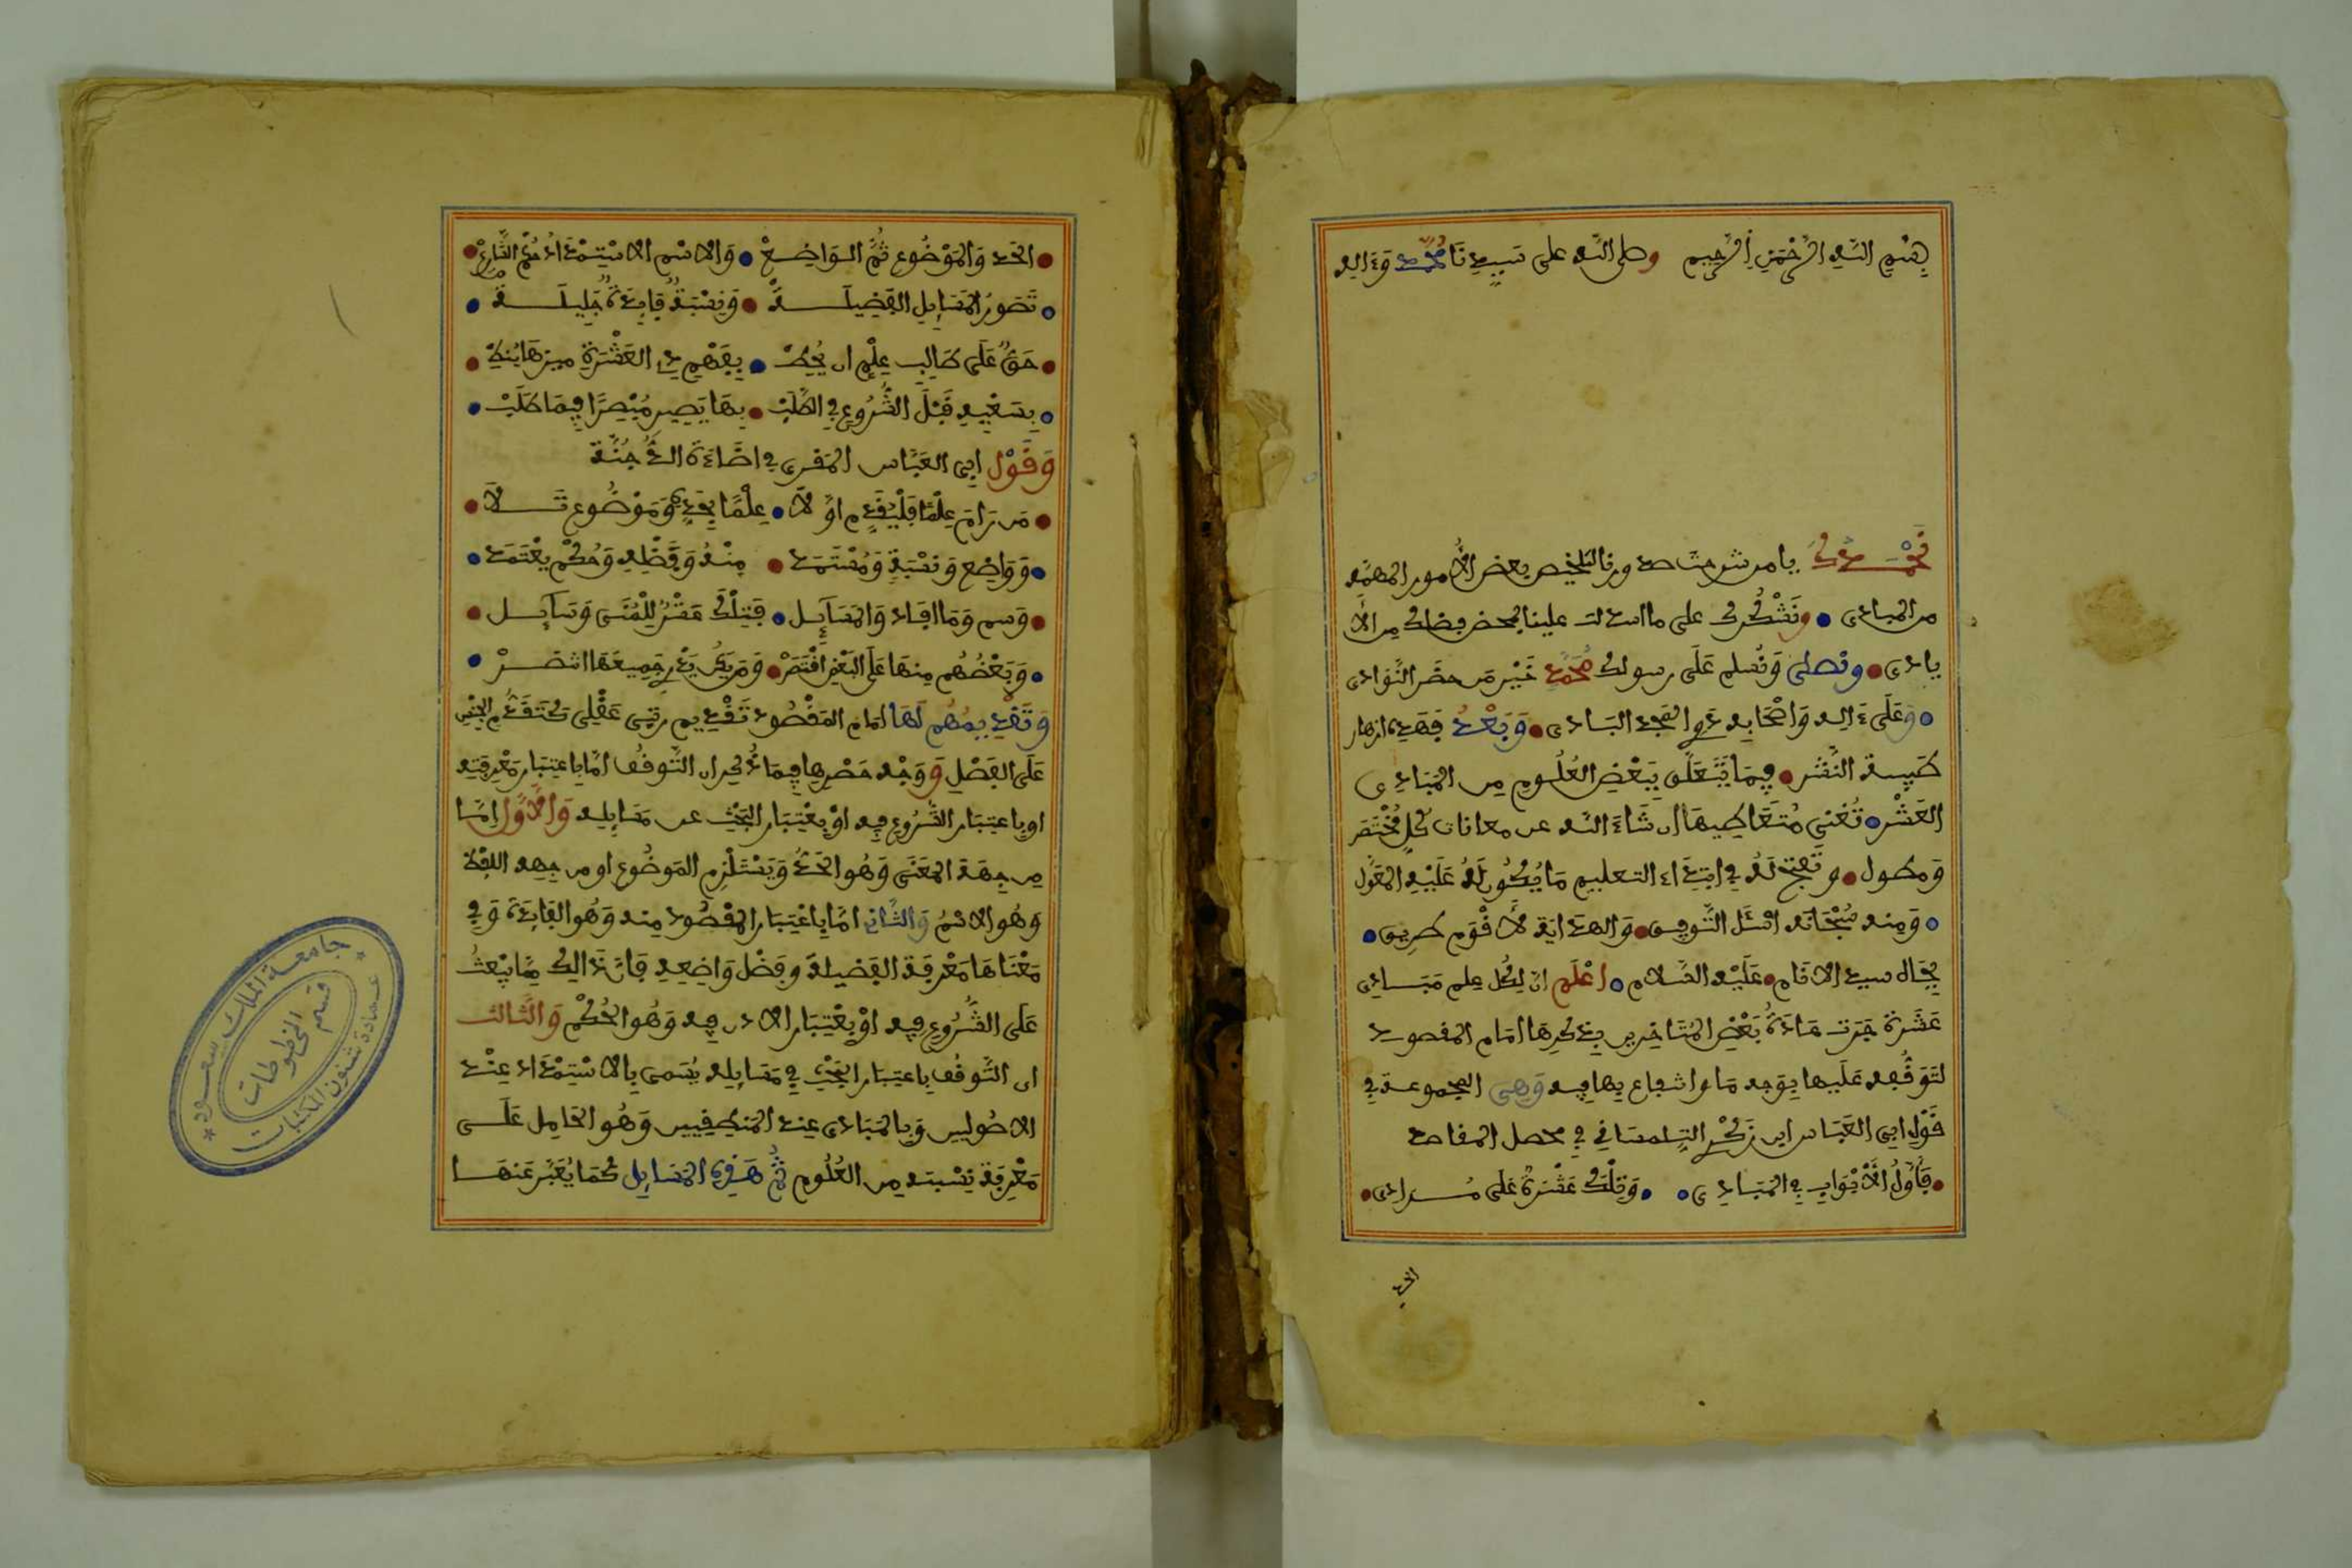 بسم الله الرحمن الرحيم وصلى الله على سيدنا محمد وءاله
نحمدك يا من شرحت صدورنا لتلخيص بعض الأمور المهمه
من المبادى ونشكرك على ما اسدلت علينا بمحض فضلك من الأ
يادى ونصلى ونسلم على رسولك محمد خير من حضر النوادى
وعلى ءاله واصحابه ذوي المجد البادى وبعد فهذه ازهار
طيبة النشر فيما يتعلق ببعض العلوم من المبادي
العشر تغني متعاطيها ان شاء الله عن معانات كل مختصر
ومطول وتفتح له في ابتداء التعليم ما يكون له عليه المعول
ومنه سبحانه اسئل التوفيق والهداية لأقوم طريق
بجاه سيد الانام عليه السلام اعلم ان لكل علم مبادي
عشرة جرت عادة بعض المتاخرين بذكرها امام المقصود
لتوقفه عليها بوجه ما وانتفاع بها فيه وهى المجموعة في
قول ابي العباس ابن زكري التلمساني في محصل المقاصد
فأول الأبواب في المبادي وتلك عشرة على مرادى
الحد
الحد والموضوع ثم الواضع والاسم الاستمداد حكم الشارع
تصور المسايل الفضيلة ونسبة فايدة جليلة
حق على طالب علم ان يحيط بفهم ذي العشرة ميزها ينيط
بسعيه قبل الشروع في الطلب بها يصير مبصرا فيما طلب
وقول ابي العباس المقرى في اضاءة الدجنة
من رام علما فليقدم اولا علما بحده وموضوع تلا
وواضع ونسبة ومستمد منه وفضله وحكم يعتمد
وسم وما افاد والمسآيل فتلك عشر للمنى وسآيل
وبعضهم منها على البعض اقتصر ومن يكن يدري جميعها انتصر
وتقديمهم لها امام المقصود تقديم رتبى عقلى كتقدم الجنس
على الفصل ووجه حصرها فيما ذكر ان التوقف اما باعتبار معرفته
او باعتبار الشروع فيه او بعتبار البحث عن مسايله والأول اما
من جهة المعنى وهو الحد ويستلزم الموضوع او من جهه اللفظ
وهو الاسم والثانى اما باعتبار المقصود منه وهو الفايدة وفي
معناها معرفة الفضيلة وفضل واضعه فان ذالك مما يبعث
على الشروع فيه او بعتبار الاذن فيه وهو الحكم والثالث
ان التوقف باعتبار البحث في مسايله يسمى بالاستمداد عند
الاصوليين وبالمبادى عند المنطقيين وهو الحامل على
معرفة نسبته من العلوم ثم هذه المسايل كما يعبر عنها
جامعة الملك سعود
عمادة شئون المكتبات
قسم المخطوطات